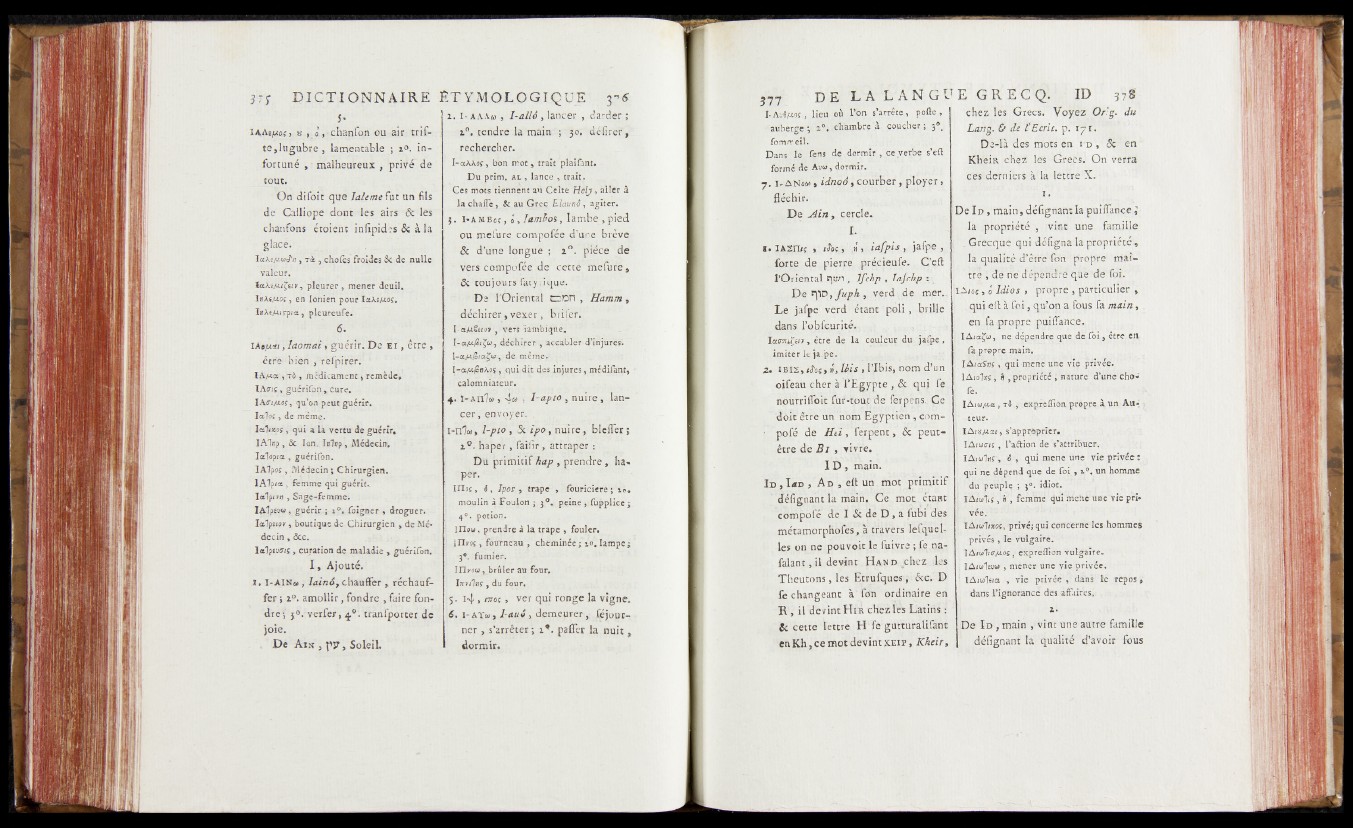 375 DICTIONNAIRE ÉTYMOLOGIQUE 376
5.
ΙΑΛεμος, ȣ, ὁ, chanſon ou air triſ-
te, lugubre, lamentable ; 2°. in-
fortuné, malheureux, privé de
tout.
On diſoit que Ialeme fut un fils
de Calliope dont les airs & les
chanſons étoient inſipides & à la
glace.
Ιαλεμωδη, τὰ, choſes froides & de nulle
valeur.
Ιαλεμιζειν, pleurer, mener deuil.
Ιηλεμος, en Ionien pour Ιαλεμος.
Ιηλεμιςρια, pleureuſe.
6.
ΙΑομαι, Iaomai, guérir. De EI, être,
être bien, reſpirer.
ΙΑμα, τὸ, médicament, remède.
ΙΑσις, guériſon, cure.
ΙΑσιμος, qu'on peut guérir.
Ιαῖος, de même.
Ιαῖικος, qui a la vertu de guérir.
ΙΑῖηρ, & Ion. Ιηῖηρ, Médecin.
Ιαῖορια, guériſon.
ΙΑῖρος, Médecin ; Chirurgien.
ΙΑῖρια, femme qui guérit.
Ιαῖρινη, Sage-femme.
ΙΑῖρευω, guérir ; 2°. ſoigner, droguer.
Ιαῖρειον, boutique de Chirurgien, de Mé-
decin, &c.
Ιαῖρευσις, curation de maladie, guériſon.
I, Ajouté.
1. I-ΑΙΝω, Iainó, chauffer, réchauf-
fer ; 2°. amollir, fondre, faire fon-
dre ; 3°. verſer, 4°. tranſporter de
joie.
De AIN, עין, Soleil.
2. I-ΑΛΛω, I-alló, lancer, darder ;
2°. tendre la main ; 3o. déſirer,
rechercher.
I-αλλος, bon mot, trait plaiſant.
Du prim. AL, lance, trait.
Ces mots tiennent au Celte Hely, aller à
la chaſſe, & au Grec Elaunó, agiter.
3. I-ΑΜΒος, ὁ, Iambos, Iambe, pied
ou meſure compoſée d'une brève
& d'une longue ; 2°. pièce de
vers compoſée de cette meſure,
& toujours ſatyrique.
De l'Oriental חמם, Hamm,
déchirer, vexer, briſer.
I-αμβειον, vers iambique.
I-αμβιζω, déchirer, accabler d'injures.
I-αμβιαζω, de même.
I-αμβηλος, qui dit des injures, médiſant,
calomniateur.
4. I-ΑΠῖω, ψω, I-apto, nuire, lan-
cer, envoyer.
I-Πῖω, I-pto, & ipo, nuire, bleſſer ;
2°. haper, ſaiſir, attraper :
Du primitif hap, prendre, ha-
per.
ΙΠος, ὁ, Ipos, trape, ſouriciere ; 2o.
moulin à Foulon ; 3°. peine, ſupplice ;
4°. potion.
ΙΠοω, prendre à la trape, fouler.
ΙΠνος, fourneau, cheminée ; 2o. lampe ;
3°. fumier.
ΙΠνοω, brûler au four.
Ιπνῖης, du four.
5. Ιψ, ιπος, ver qui ronge la vigne.
6. I-ΑΥω, I-auó, demeurer, ſéjour-
ner, s'arrêter ; 2°. paſſer la nuit,
dormir.
377 DE LA LANGUE GRECQ. ID 378
I-Αυθμος, lieu où l'on s'arrête, poſte,
auberge ; 2°. chambre à coucher ; 3°.
ſommeil.
Dans le ſens de dormir, ce verbe s'eſt
formé de Αυω, dormir.
7. I-ΔΝοω, idnoó, courber, ployer,
fléchir.
De Ain, cercle.
I.
1. ΙΑΣΠις, ιδος, ἡ, iaſpis, jaſpe,
ſorte de pierre précieuſe. C'eſt
l'Oriental ישף, Iſchp, Iaſchp :
De סוף, ſuph, verd de mer.
Le jaſpe verd étant poli, brille
dans l'obſcurité.
Ιασπιζειν, être de la couleur du jaſpe,
imiter le jaſpe.
2. ΙΒΙΣ, ιδος, ἡ, Ibis, l'Ibis, nom d'un
oiſeau cher à l'Egypte, & qui ſe
nourriſſoit ſur-tout de ſerpens. Ce
doit être un nom Egyptien, com-
poſé de Hei, ſerpent, & peut-
être de BI, vivre.
ID, main.
ID, IAD, AD, eſt un mot primitif
déſignant la main. Ce mot étant
compoſé de I & de D, a ſubi des
métamorphoſes, à travers leſquel-
les on ne pouvoit le ſuivre ; ſe na-
ſalant, il devint HAND chez les
Theutons, les Etruſques, &c. D
ſe changeant à ſon ordinaire en
R, il devint HIR chez les Latins :
& cette lettre H ſe gutturaliſant
en Kh, ce mot devint ΧΕΙΡ, Kheir,
chez les Grecs. Voyez Orig. du
Lang. & de l'Ecrit. p. 171.
De-là des mots en ID, & en
Kheir chez les Grecs. On verra
ces derniers à la lettre X.
1.
De ID, main, déſignant la puiſſance,
la propriété, vint une famille
Grecque qui déſigna la propriété,
la qualité d'être ſon propre maî-
tre, de ne dépendre que de ſoi.
ΙΔιος, ὁ Idios, propre, particulier,
qui eſt à ſoi, qu'on a ſous ſa main,
en ſa propre puiſſance.
ΙΔιαζω, ne dépendre que de ſoi, être en
ſa propre main.
ΙΔιαςης, qui mene une vie privée.
ΙΔιοῖης, ἡ, propriété, nature d'une cho-
ſe.
ΙΔιωμα, τὸ, expreſſion propre à un Au-
teur.
ΙΔιȣμαι, s'approprier.
ΙΔιωσις, l'action de s'attribuer.
ΙΔιωῖης, ὁ, qui mene une vie privée :
qui ne dépend que de ſoi, 2°. un homme
du peuple ; 3°. idiot.
ΙΔιωῖις, ἡ, femme qui mene une vie pri-
vée.
ΙΔιωῖικος, privé ; qui concerne les hommes
privés, le vulgaire.
ΙΔιωῖισμος, expreſſion vulgaire.
ΙΔιωῖευω, mener une vie privée.
ΙΔιωῖεια, vie privée, dans le repos,
dans l'ignorance des affaires.
2.
De ID, main, vint une autre famille
déſignant la qualité d'avoir ſous